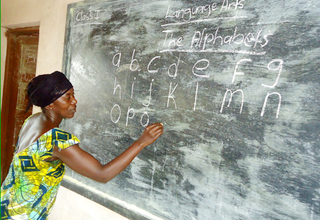 Class I
Language Arts
The Alphabets
a b c d e f g
h i j k l m n
o p q